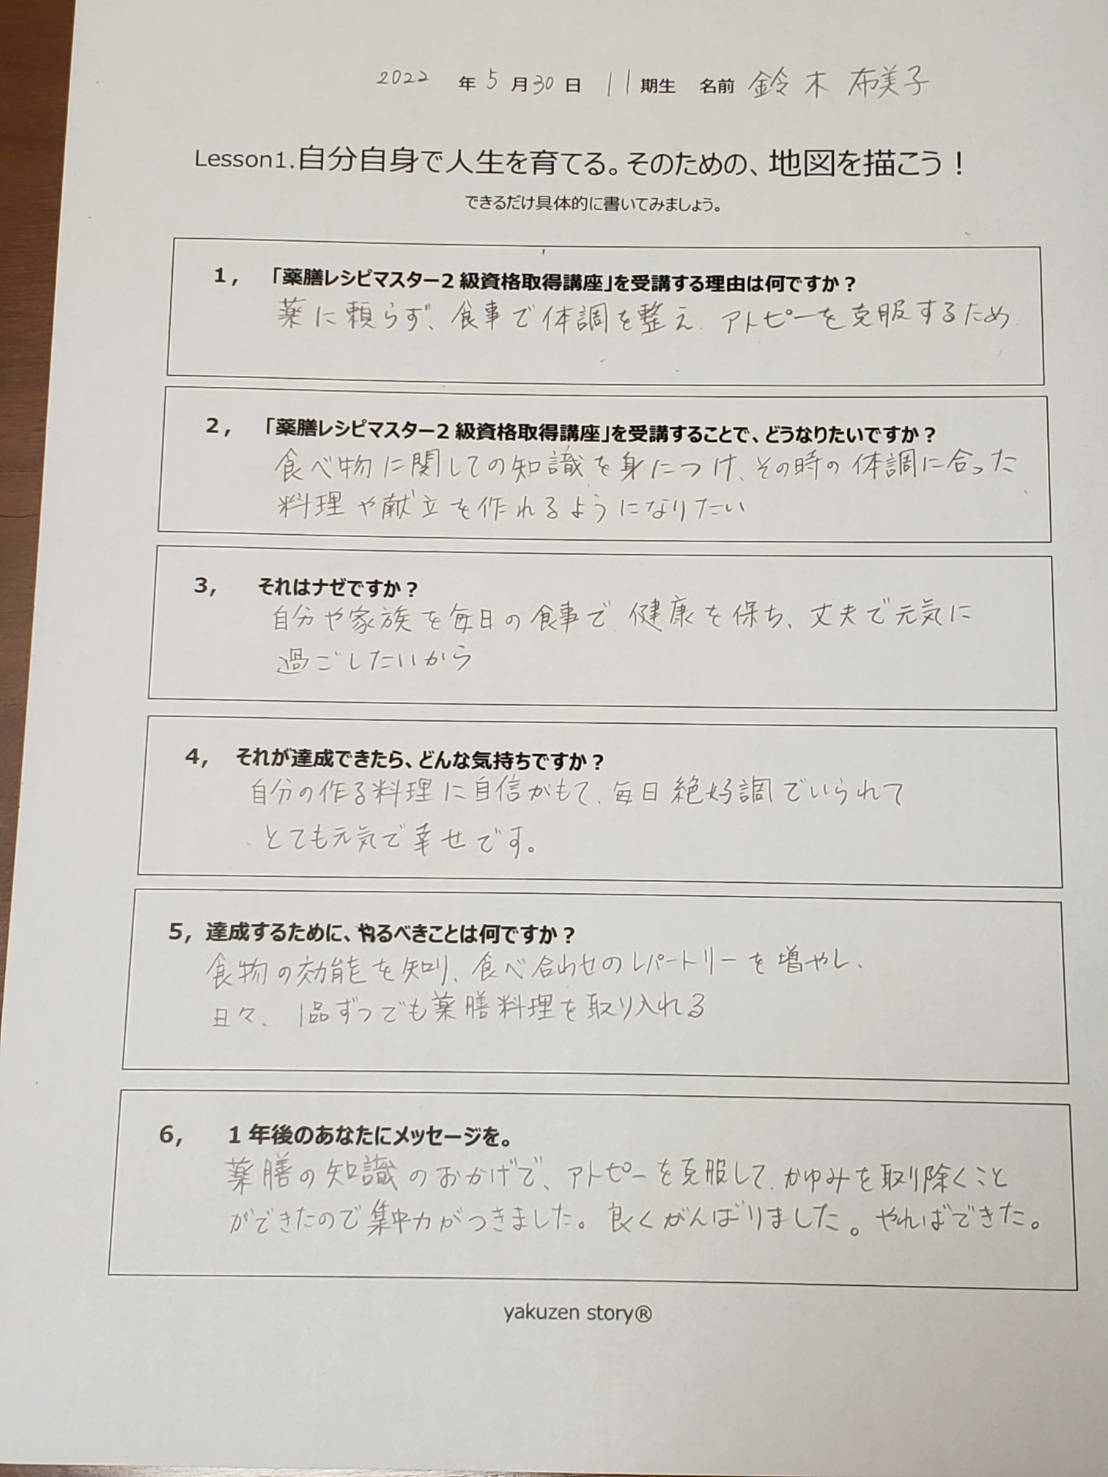 2022 年 5 月 30 日 11 期生 名前 鈴木 布美子
Lesson1.自分自身で人生を育てる。そのための、地図を描こう！
できるだけ具体的に書いてみましょう。
1, 「薬膳レシピマスター2級資格取得講座」を受講する理由は何ですか？
薬に頼らず、食事で体調を整え、アトピーを克服するため
2, 「薬膳レシピマスター2級資格取得講座」を受講することで、どうなりたいですか？
食べ物に関しての知識を身につけ、その時の体調に合った
料理や献立を作れるようになりたい
3, それはナゼですか？
自分や家族を毎日の食事で健康を保ち、丈夫で元気に
過ごしたいから
4, それが達成できたら、どんな気持ちですか？
自分の作る料理に自信がもて、毎日絶好調でいられて
とても元気で幸せです。
5, 達成するために、やるべきことは何ですか？
食物の効能を知り、食べ合わせのレパートリーを増やし、
日々、1品ずつでも薬膳料理を取り入れる
6, 1年後のあなたにメッセージを。
薬膳の知識のおかげで、アトピーを克服して、かゆみを取り除くこと
ができたので集中力がつきました。良くがんばりました。やればできた。
yakuzen story®